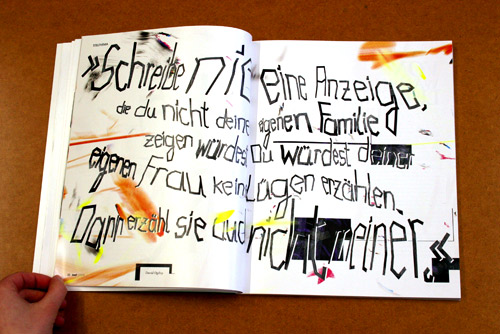 »Schreibe nie eine Anzeige,
die du nicht deiner eigenen Familie
zeigen würdest. Du würdest deiner
eigenen Frau keine Lügen erzählen.
Dann erzähl sie auch nicht meiner.«
David Ogilvy